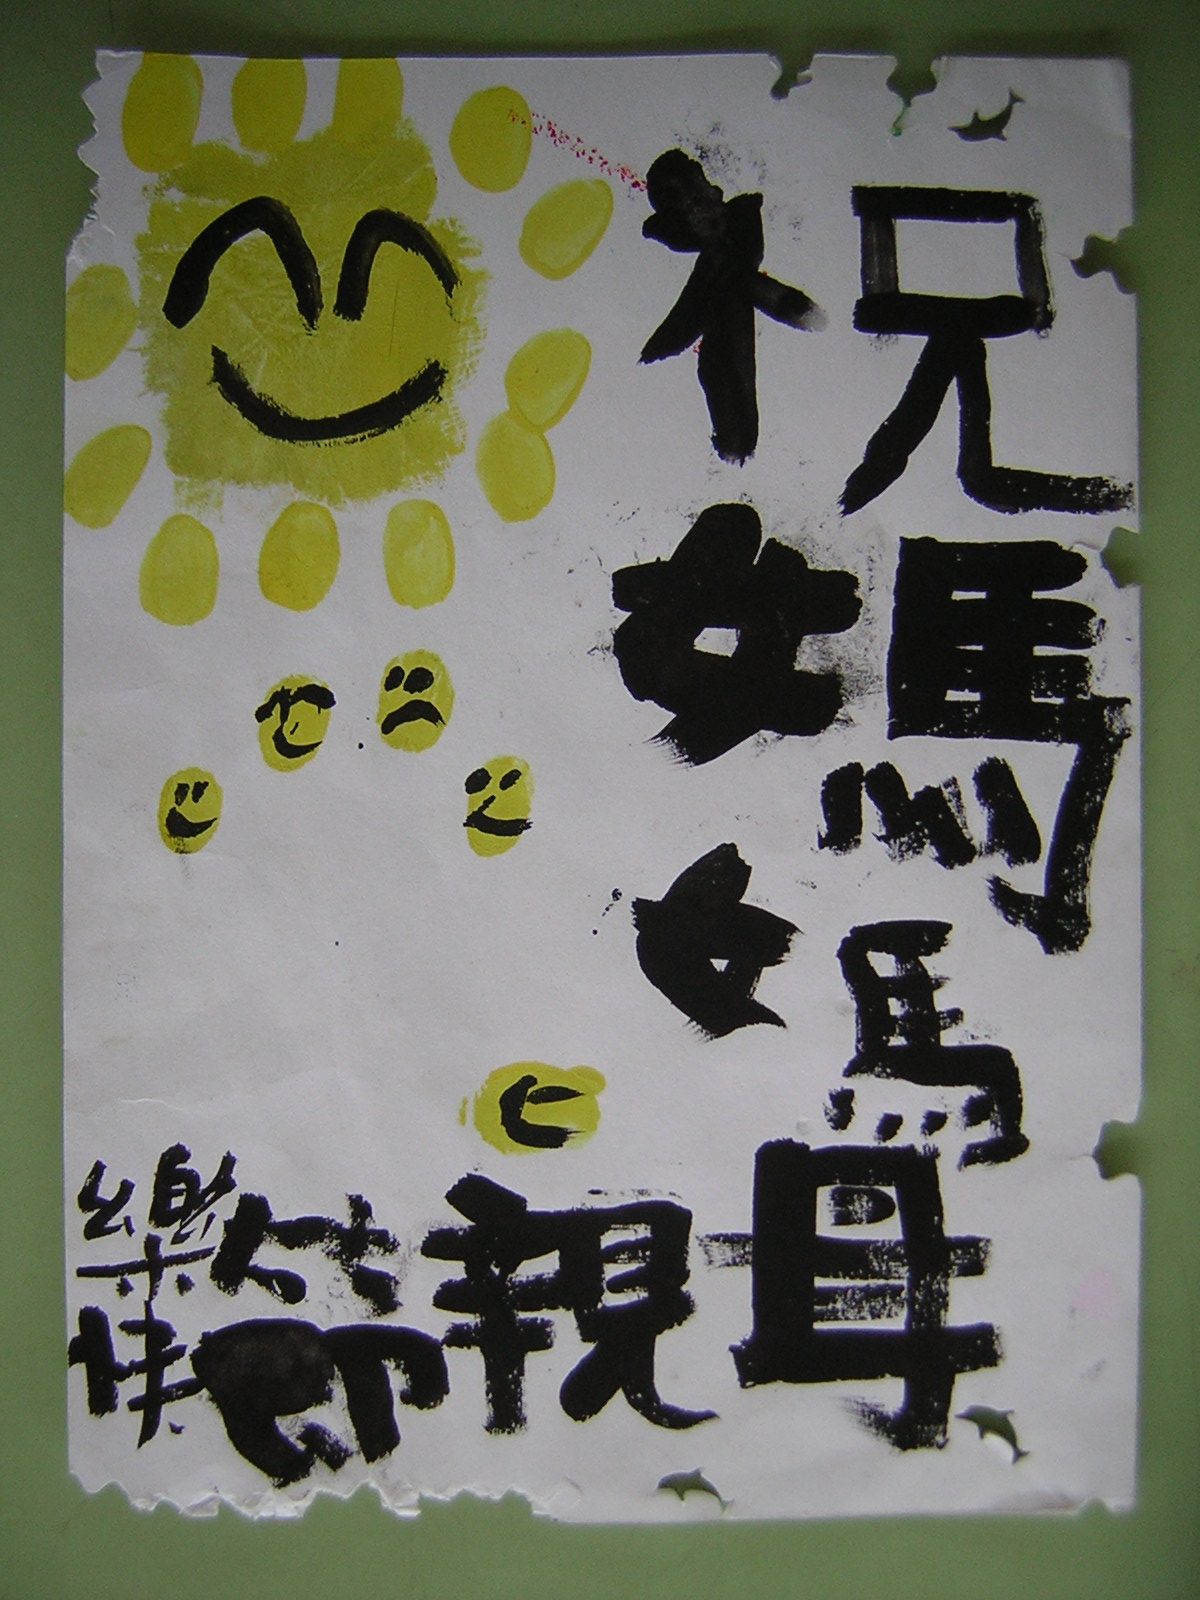 祝媽媽
母親節快樂